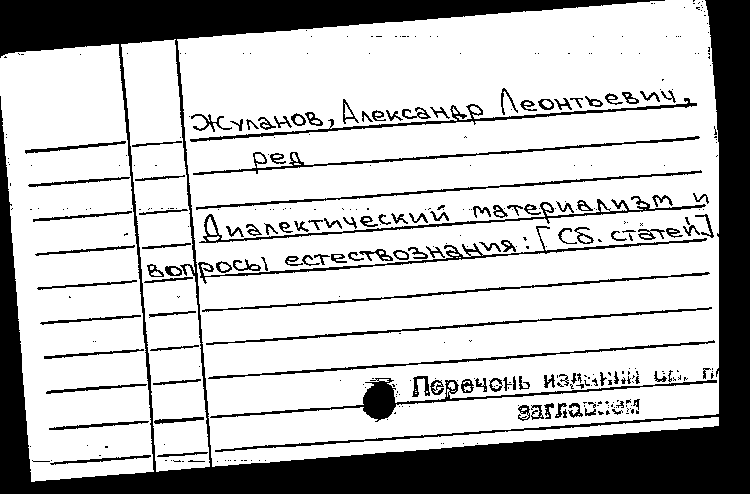 Жуланов, Александр Леонтьевич,
ред
Диалектический материализм и
вопросы естествознания: [Сб. статей].
Перечень изданий см. п
заглавием